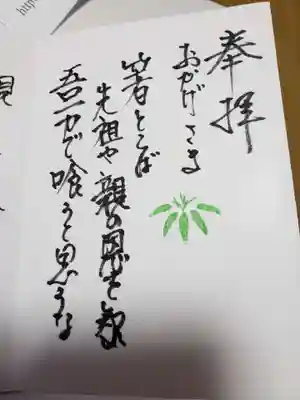 奉拝
おかげさま
箸とらば
先祖や親の恩を知れ
吾一力で喰うと思うな
http